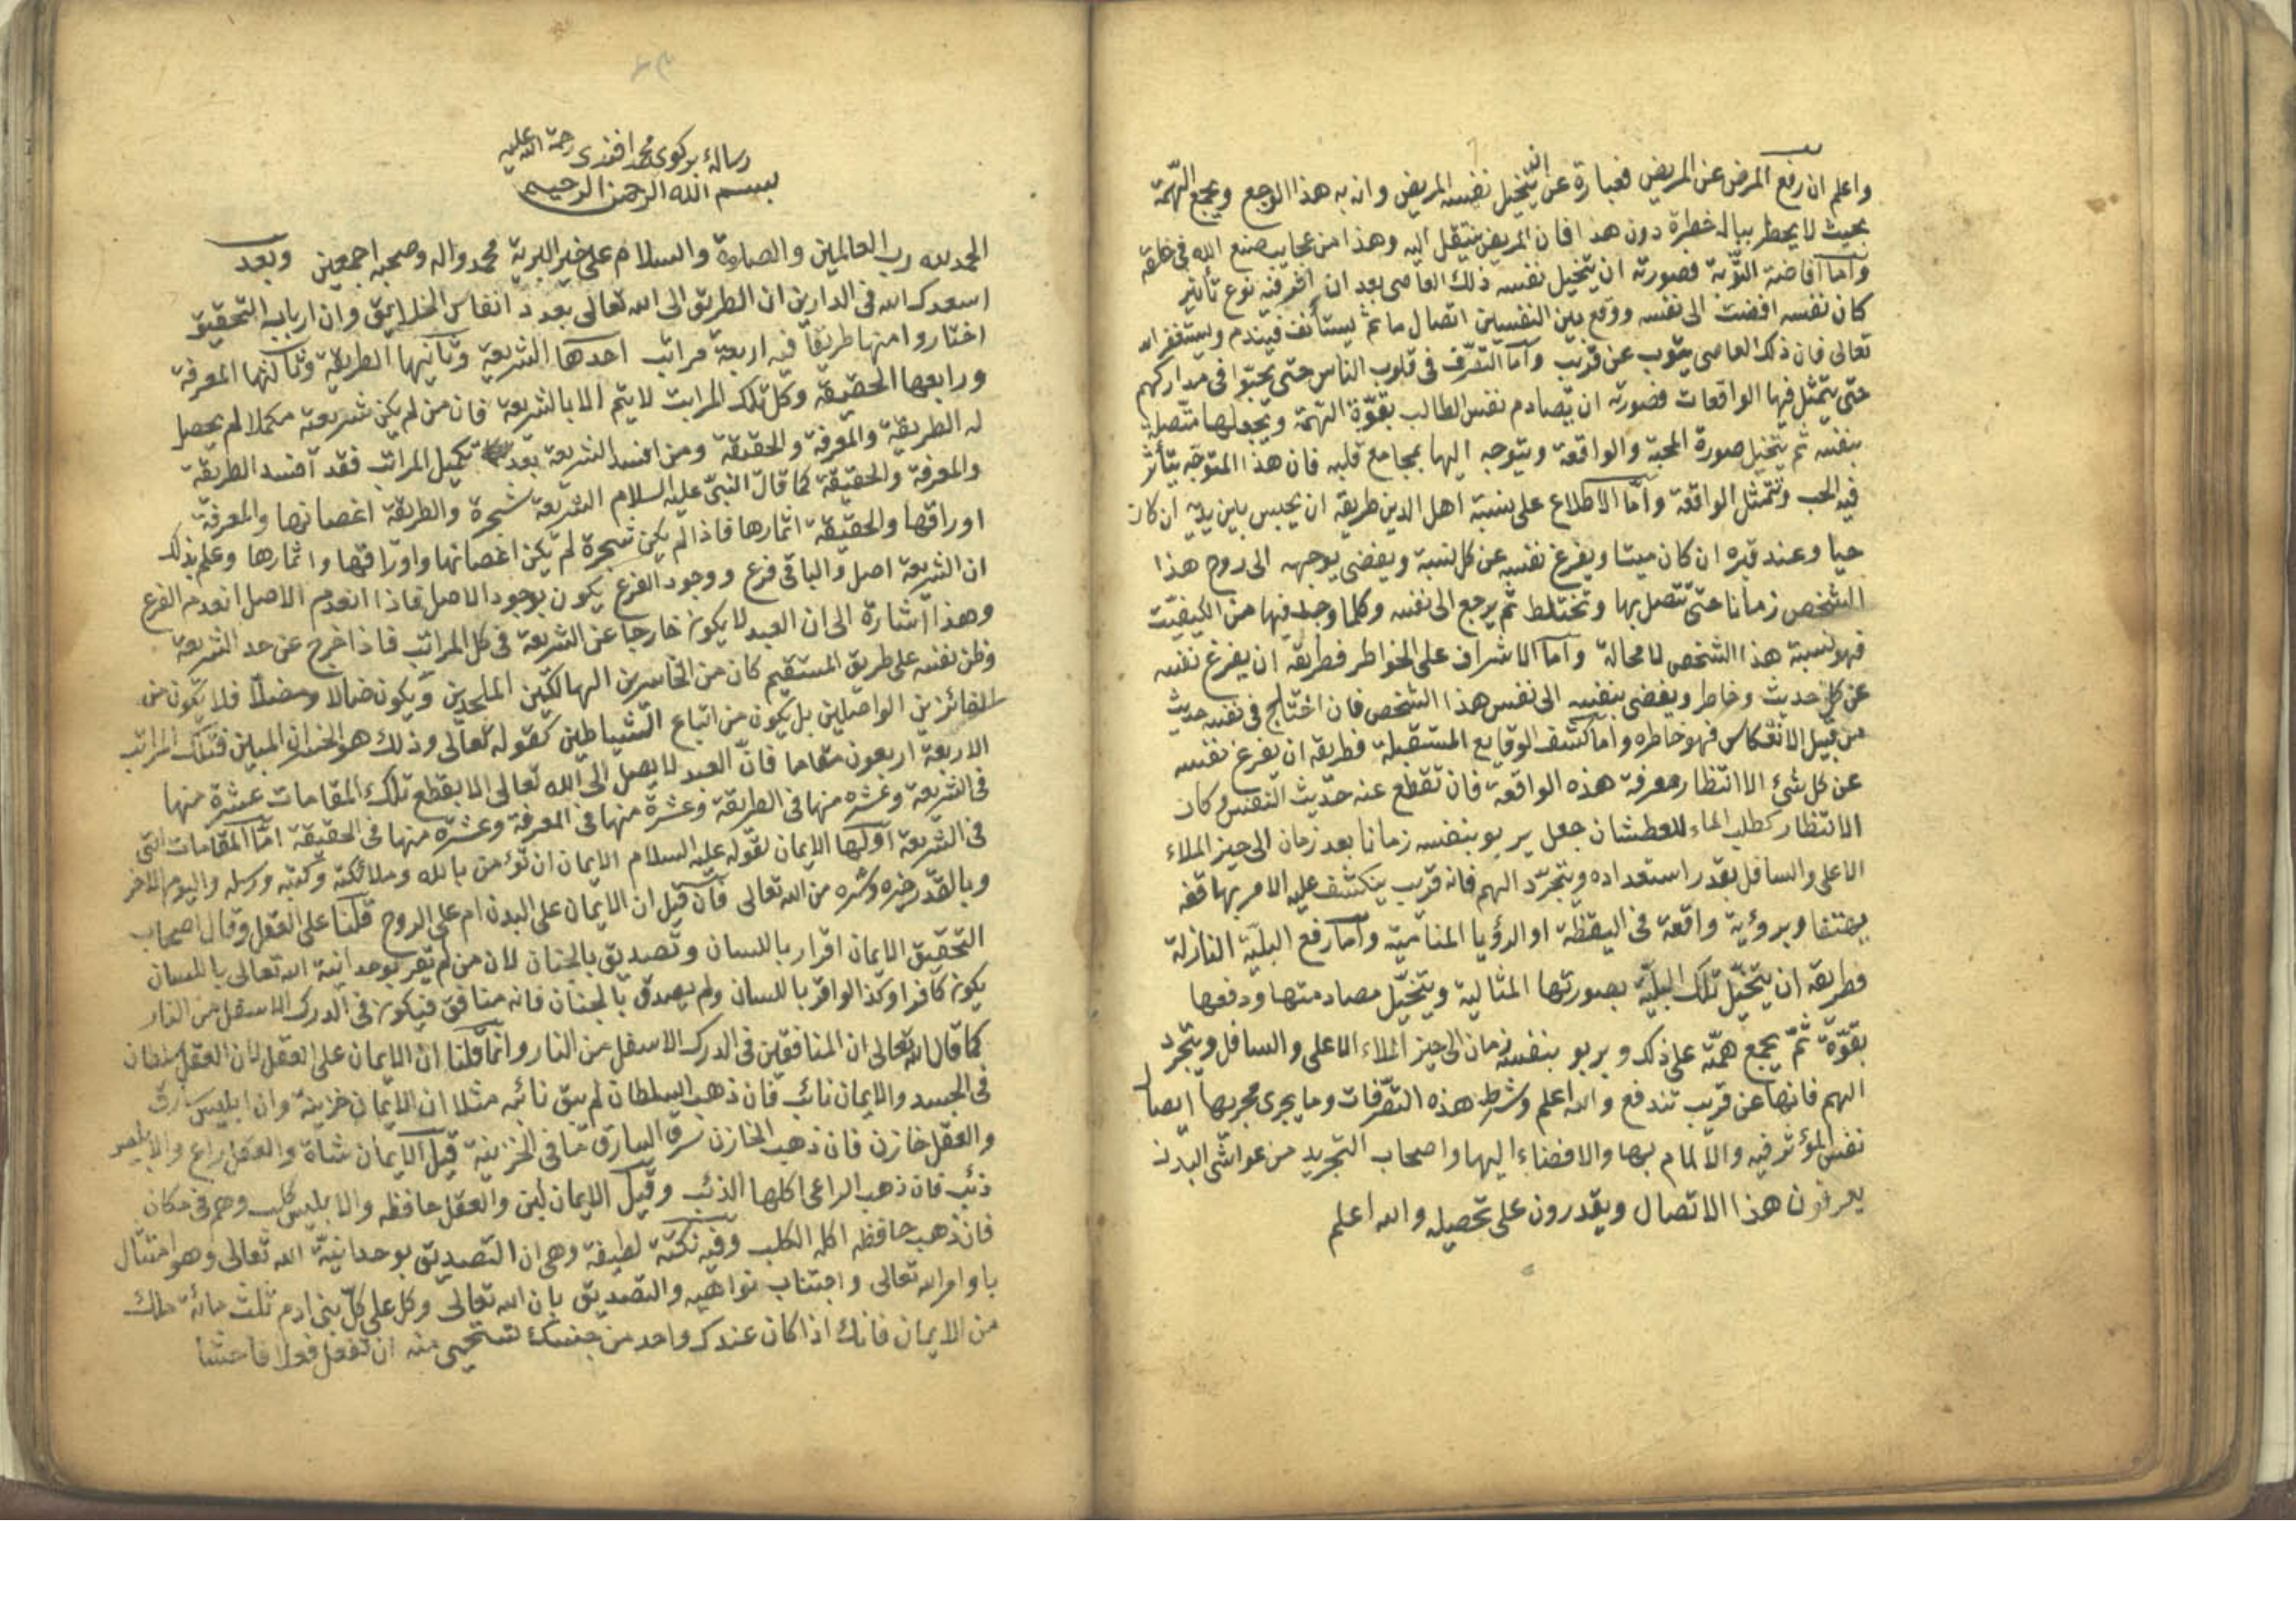 واعلم ان رفع المرض عن المريض فعبارة عن ان يتخيل نفسه المريض وانه به هذا الوجع ويجمع الهّمة
بحيث لا يخطر بباله خطرة دون هذا فان المريض ينتقل اليه وهذا من عجايب صنع الله في خلقه
وامّا افاضة التّوبة فصورته ان يتخيل نفسه ذلك العاصى بعد ان اثر فيه نوع تأثير
كان نفسه افضت الى نفسه ووقع بين النفسين اتصال ما ثم يستأنف فيندم ويستغفر الله
تعالى فان ذلك العاصى يتوب عن قريب وامّا التصّرف في قلوب الناس حتى يحبّوا في مداركهم
حتى يتمثل فيها الواقعات فصورته ان يصادم نفس الطالب بقوّة الهّمة ويجعلها متّصلة
بنفسه ثم يتخيل صورة المحبة والواقعة ويتوجه اليها بمجامع قلبه فان هذا المتوجّه يتأثر
فيه الحب وتتمثل الواقعة وامّا الاطلاع على نسبة اهل الدين طريقه ان يجلس بين يديه ان كان
حيا وعند قبره ان كان ميتا ويفرغ نفسه عن كل نسبة ويفضى بوجهه الى روح هذا
الشخص زمانا حتى تتصل بها وتختلط ثم يرجع الى نفسه وكلما وجد فيها من الكيفيّت
فهو نسبة هذا الشخص لا محالة وامّا الاشراف على الخواطر فطريقه ان يفرغ نفسه
عن كل حديث وخاطر ويفضى بنفسه الى نفس هذا الشخص فان اختلج في نفسه حديث
من قبيل الانعكاس فهو خاطره وامّا كشف الوقايع المستقبلة فطريقه ان يفرغ نفسه
عن كل شئ الا انتظار معرفة هذه الواقعة فان تقطع عنه حديث النفس وكان
الانتظار كطلب الماء للعطشان جعل يربو بنفسه زمانا بعد زمان الى حيز الملاء
الاعلى والسافل بقدر استعداده ويتجرّد اليهم فانه قريب ينكشف عليه الامر بهاتفه
يهتفا وبرؤية واقعة في اليقظة او الرؤيا المناميّة وامّا رفع البليّة النازلة
فطريقه ان يتخيّل تلك البليّة بصورتها المثالية ويتخيّل مصادمتها ودفعها
بقوّة ثمّ يجمع همّته على ذلك ويربو بنفسه زمان الى حيز الملاء الاعلى والسافل ويتجرد
اليهم فانها عن قريب تندفع والله اعلم وشرط هذه التصّرفات وما يجرى مجريها اتصال
نفس المؤثر فيه والالمام بها والافضاء اليها واصحاب التجريد من غواشى البدن
يعرفون هذا الاتصال ويقدرون على تحصيله والله اعلم
رسالهٔ بركوى محمد افندى رحمة الله عليه
بسم الله الرحمن الرحيم
الحمد لله رب العالمين والصلوة والسلام على خير البرية محمد واله وصحبه اجمعين وبعد
اسعدك الله في الدارين ان الطريق الى الله تعالى بعدد انفاس الخلايق وان ارباب التحقيق
اختاروا منها طريقا فيه اربعة مراتب احدها الشريعة وثانيها الطريقة وثالثها المعرفة
ورابعها الحقيقة وكل تلك المراتب لا يتم الا بالشريعة فان من لم يكن شريعته مكملا لم يحصل
له الطريقة والمعرفة والحقيقة ومن افسد الشريعة بعد تكميل المراتب فقد افسد الطريقة
والمعرفة والحقيقة كما قال النبىّ عليه السلام الشريعة شجرة والطريقة اغصانها والمعرفة
اوراقها والحقيقة اثمارها فاذا لم يكن شجرة لم يكن اغصانها واوراقها واثمارها وعلم بذلك
ان الشريعة اصل والباقى فرع ووجود الفرع يكون بوجود الاصل فاذا انعدم الاصل انعدم الفرع
وهذا اشارة الى ان العبد لا يكون خارجا عن الشريعة في كل المراتب فاذا خرج عن حد الشريعة
وظن نفسه على طريق المستقيم كان من الخاسرين الهالكين الملحدين ويكون ضالا ومضلّا فلا يكون من
الفائزين الواصلين بل يكون من اتباع الشياطين كقوله تعالى وذلك هو الخسران المبين فتلك المراتب
الاربعة اربعون مقاما فانّ العبد لا يصل الى الله تعالى الا بقطع تلك المقامات عشرة منها
في الشريعة وعشره منها في الطريقة وعشرة منها في المعرفة وعشرة منها في الحقيقة امّا المقامات التى
في الشريعة اوّلها الايمان لقوله عليه السلام الايمان ان تؤمن بالله وملائكته وكتبه ورسله واليوم الاخر
وبالقدر خيره وشره من الله تعالى فان قيل ان الايمان على البدن ام على الروح قلنا على العقل وقال اصحاب
التحقيق الايمان اقرار باللسان وتصديق بالجنان لان من لم يقر بوحدانية الله تعالى باللسان
يكون كافرا وكذا لو اقر باللسان ولم يصدق بالجنان فانه منافق فيكون في الدرك الاسفل من النار
كما قال الله تعالى ان المنافقين في الدرك الاسفل من النار وانما قلنا ان الايمان على العقل لان العقل سلطان
في الجسد والايمان نائب فان ذهب السلطان لم يبق نائبه مثلا ان الايمان خزينة وان ابليس سارق
والعقل خازن فان ذهب الخازن سرق السارق ما في الخزينة قيل الايمان شاة والعقل راع والابليس
ذئب فان ذهب الراعى اكلها الذئب وقيل الايمان لبن والعقل حافظه والابليس كلب وهم في مكان
فان ذهب حافظه اكله الكلب وفيه نكتة لطيفة وهى ان التصديق بوحدانيّة الله تعالى وهو امتثال
باوامر الله تعالى واجتناب نواهيه والتصديق بان الله تعالى وكل على كلّ بنى ادم ثلث مائة ملك
من الايمان فانك اذا كان عندك واحد من جنسك تستحيى منه ان تفعل فعلا فاحشا